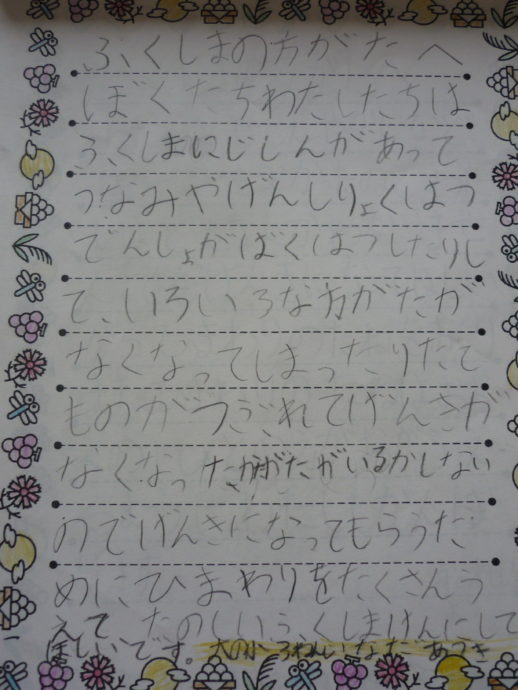 ふくしまの方がたへ
ぼくたちわたしたちは
ふくしまにじしんがあって
つなみやげんしりょくはつ
でんしょがばくはつしたりし
て、いろいろな方がたが
なくなってしまったりたて
ものがつぶれてげんきが
なくなったかたがいるかしない
のでげんきになってもらうた
めにひまわりをたくさんう
えて たのしいふくしまけんにして
ほしいです。